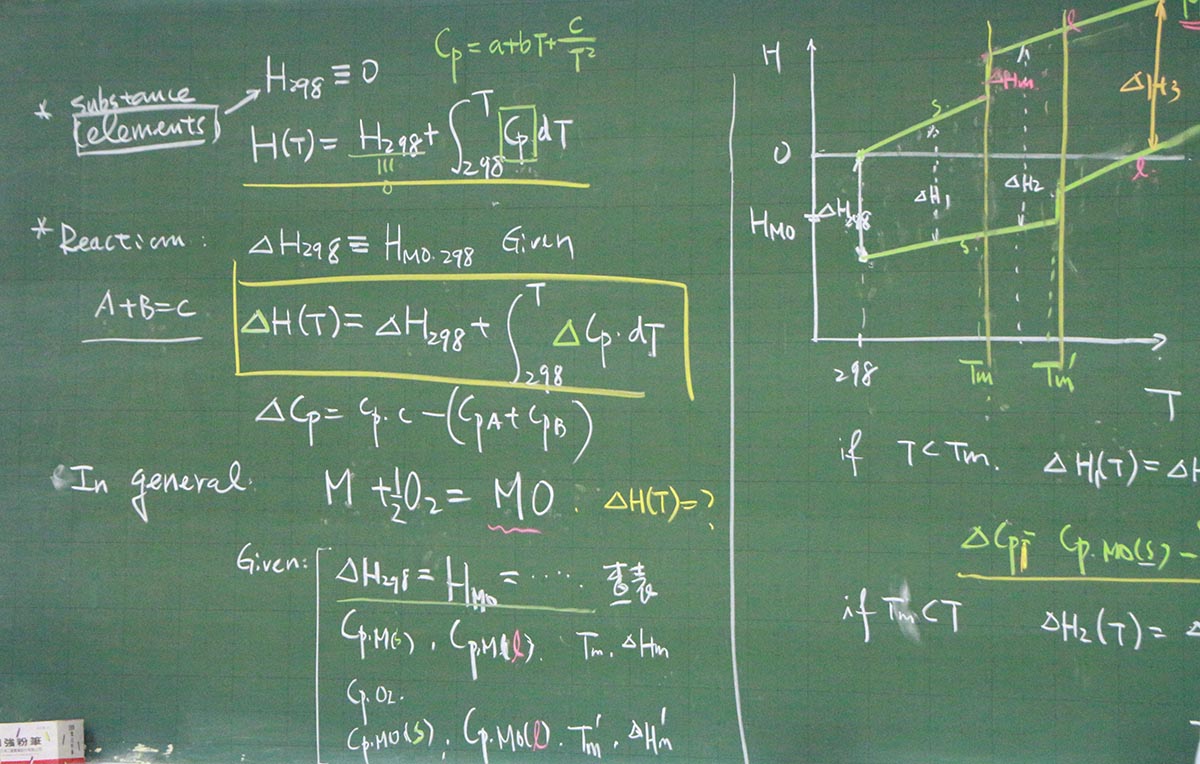 Cp = a+bT+ C/T²
* substance
(elements)
H298 ≡ 0
H(T) = H298 + ∫298^T Cp dT
0
* Reaction :
ΔH298 ≡ HMO.298 Given
A+B=C
ΔH(T) = ΔH298 + ∫298^T ΔCp · dT
ΔCp = Cp.C − (CpA + CpB)
In general.
M + ½O2 = MO . ΔH(T)=?
Given:
ΔH298 = HMO = ······ 查表
Cp.M(s) , Cp.M(l). Tm. ΔHm
Cp.O2.
Cp.MO(s) . Cp.MO(l) . Tm' . ΔHm'
H
0
HMO
ΔH298
s
l
ΔHm
ΔH1
ΔH2
ΔH3
s
l
298
Tm
Tm'
T
if T<Tm. ΔH1(T) = ΔH
ΔCp = Cp.MO(s) −
if Tm<T ΔH2(T) =
強粉筆